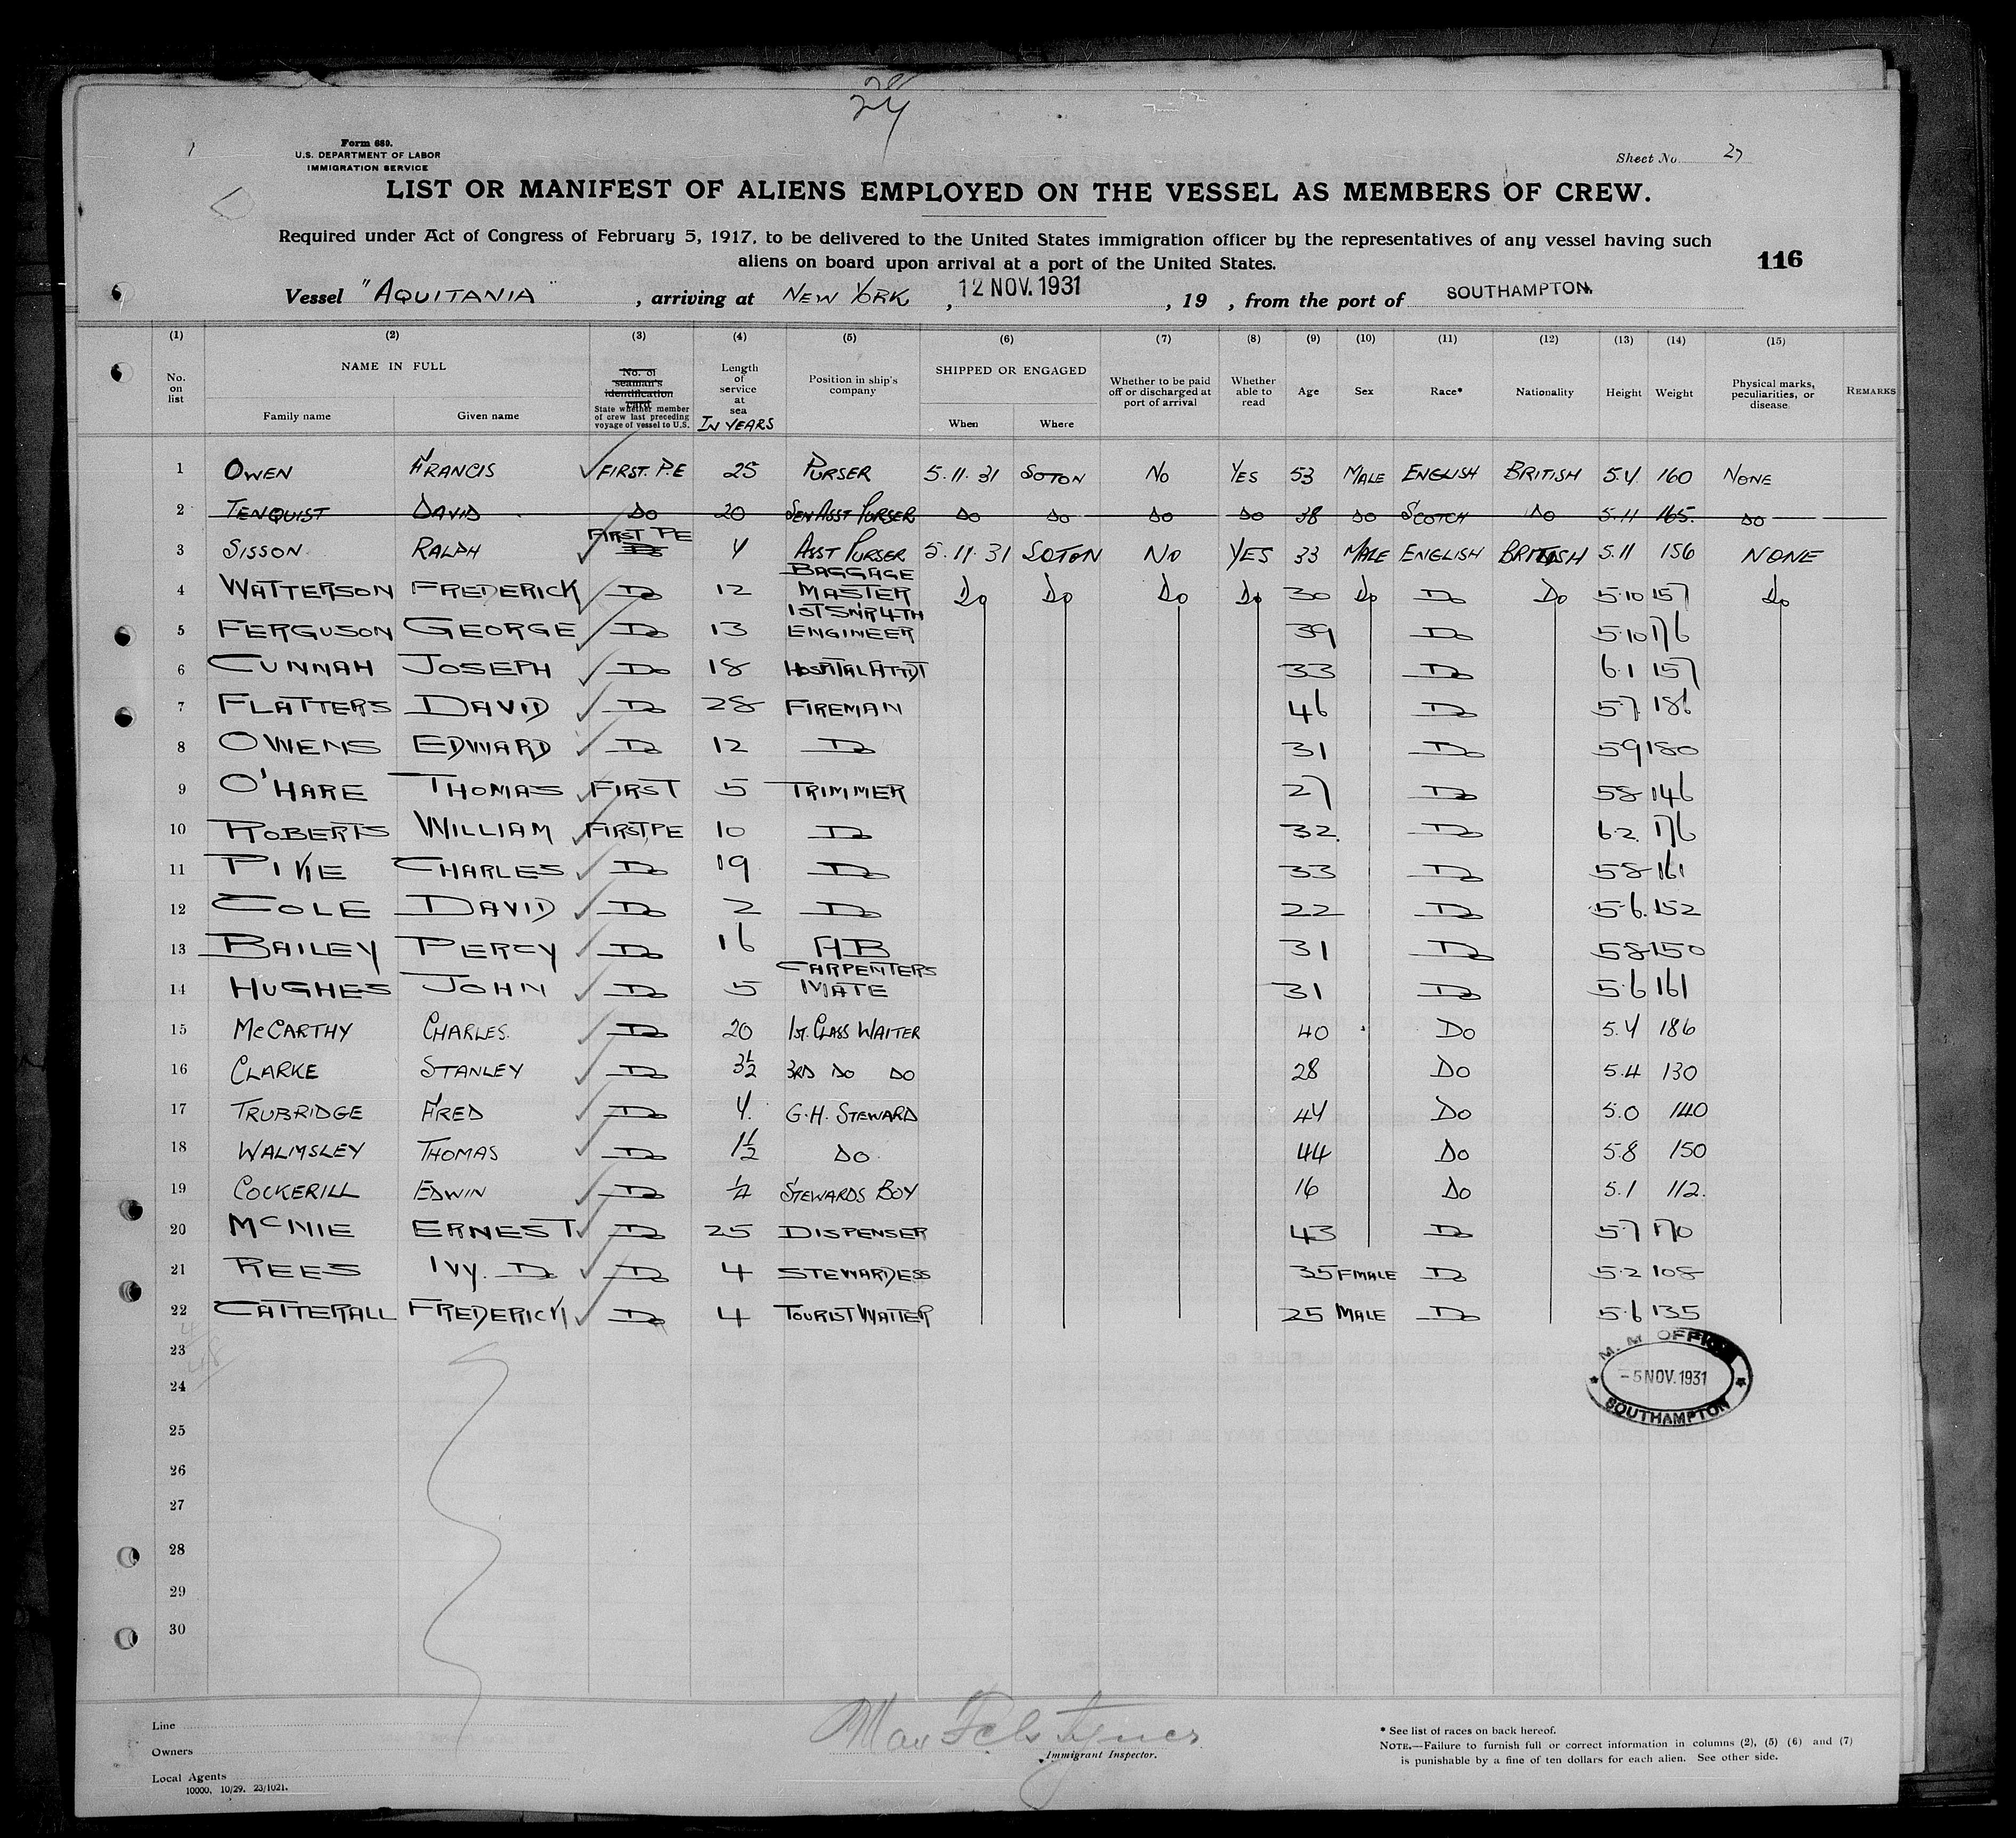 24
Form 680.
U.S. DEPARTMENT OF LABOR
IMMIGRATION SERVICE
Sheet No. 27
LIST OR MANIFEST OF ALIENS EMPLOYED ON THE VESSEL AS MEMBERS OF CREW.
Required under Act of Congress of February 5, 1917, to be delivered to the United States immigration officer by the representatives of any vessel having such
aliens on board upon arrival at a port of the United States.
116
Vessel "AQUITANIA", arriving at NEW YORK, 12 NOV. 1931, 19 , from the port of SOUTHAMPTON.
(1) (2) (3) (4) (5) (6) (7) (8) (9) (10) (11) (12) (13) (14) (15)
No. on list NAME IN FULL Family name Given name No. of seaman's identification card State whether member of crew last preceding voyage of vessel to U.S. Length of service at sea IN YEARS Position in ship's company SHIPPED OR ENGAGED When Where Whether to be paid off or discharged at port of arrival Whether able to read Age Sex Race* Nationality Height Weight Physical marks, peculiarities, or disease REMARKS
1 OWEN FRANCIS FIRST. P.E 25 PURSER 5.11.31 SOTON NO YES 53 MALE ENGLISH BRITISH 5.4 160 NONE
2 TENQUIST DAVID DO 20 SEN ASST PURSER DO DO DO DO 38 DO SCOTCH DO 5.11 165. DO
3 SISSON RALPH FIRST PE 4 ASST PURSER 5.11.31 SOTON NO YES 33 MALE ENGLISH BRITISH 5.11 156 NONE
4 WATTERSON FREDERICK Do 12 BAGGAGE MASTER Do Do Do Do 30 Do Do Do 5.10 157 Do
5 FERGUSON GEORGE Do 13 1ST SNR 4TH ENGINEER 39 Do 5.10 176
6 CUNNAH JOSEPH Do 18 HOSPITAL ATTDT 33 Do 6.1 157
7 FLATTERS DAVID Do 28 FIREMAN 46 Do 5.7 186
8 OWENS EDWARD Do 12 Do 31 Do 59 180
9 O'HARE THOMAS FIRST 5 TRIMMER 27 Do 58 146
10 ROBERTS WILLIAM FIRST, PE 10 Do 32. Do 6.2. 176
11 PIKE CHARLES Do 19 Do 33 Do 58 161
12 COLE DAVID Do 2 Do 22 Do 5.6. 152
13 BAILEY PERCY Do 16 AB 31 Do 58 150
14 HUGHES JOHN Do 5 CARPENTERS MATE 31 Do 5.6 161
15 McCARTHY CHARLES. Do 20 1ST. CLASS WAITER 40 DO 5.4 186
16 CLARKE STANLEY Do 3½ 3RD DO DO 28 DO 5.4 130
17 TRUBRIDGE FRED Do 4. G.H. STEWARD 44 DO 5.0 140
18 WALMSLEY THOMAS Do 1½ DO 44 DO 5.8 150
19 COCKERILL EDWIN Do ¼ STEWARDS BOY 16 DO 5.1 112.
20 McNIE ERNEST Do 25 DISPENSER 43 Do 5.7 170
21 REES IVY. D Do 4 STEWARDESS 35 FMALE Do 5.2 108
22 CATTERALL FREDERICK Do 4 TOURIST WAITER 25 MALE Do 5.6 135
23
24
25
26
27
28
29
30
M. M OFFICE
-5 NOV. 1931
SOUTHAMPTON
Line
Owners
Local Agents
10000, 10/29. 23/1021.
Immigrant Inspector.
* See list of races on back hereof.
NOTE.—Failure to furnish full or correct information in columns (2), (5) (6) and (7)
is punishable by a fine of ten dollars for each alien. See other side.